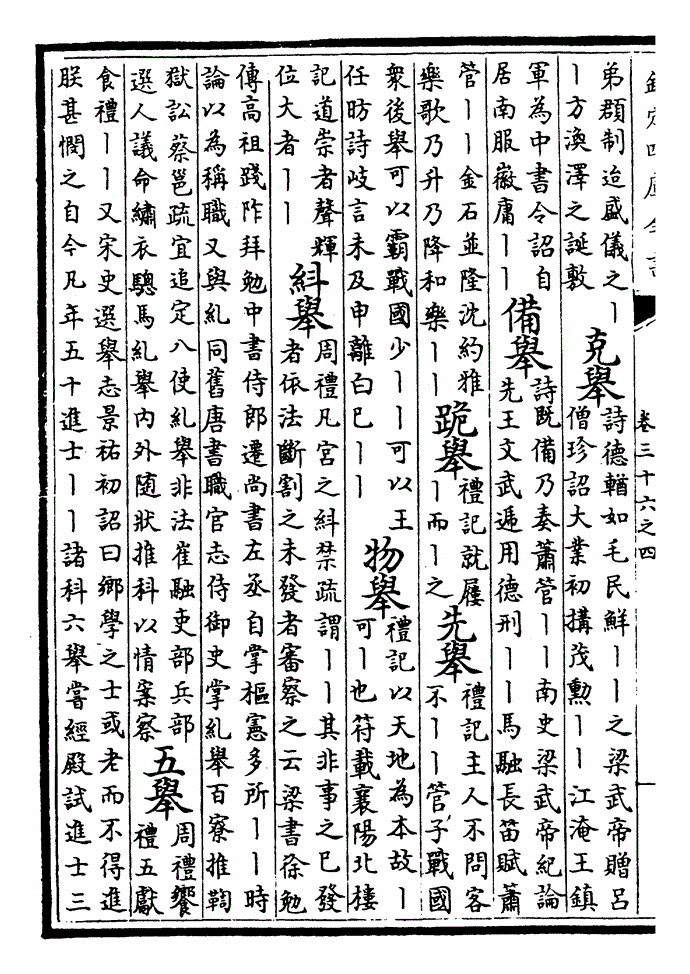 欽定四庫全書
卷三十六之四
弟群制迨盛儀之｜
｜方渙澤之誕敷
克舉
詩德輶如毛民鮮｜｜之梁武帝贈吕
僧珍詔大業初搆茂勲｜｜江淹王鎮
軍為中書令詔自
居南服徽庸｜｜
備舉
詩既備乃奏簫管｜｜南史梁武帝紀論
先王文武遞用德刑｜｜馬融長笛賦簫
管｜｜金石並隆沈約雅
樂歌乃升乃降和樂｜｜
跪舉
禮記就屨
｜而｜之
先舉
禮記主人不問客
不｜｜管子戰國
衆後舉可以霸戰國少｜｜可以王
任昉詩岐言未及申離白已｜｜
物舉
禮記以天地為本故｜
可｜也符載襄陽北樓
記道崇者聲輝
位大者｜｜
糾舉
周禮凡宮之糾禁疏謂｜｜其非事之已發
者依法斷割之未發者審察之云梁書徐勉
傳高祖踐阼拜勉中書侍郎遷尚書左丞自掌樞憲多所｜｜時
論以為稱職又與糺同舊唐書職官志侍御史掌糺舉百寮推鞫
獄訟蔡邕疏宜追定八使糺舉非法崔融吏部兵部
選人議命繡衣驄馬糺舉内外隨狀推科以情案察
五舉
周禮饗
禮五獻
食禮｜｜又宋史選舉志景祐初詔曰鄉學之士或老而不得進
朕甚憫之自今凡年五十進士｜｜諸科六舉嘗經殿試進士三